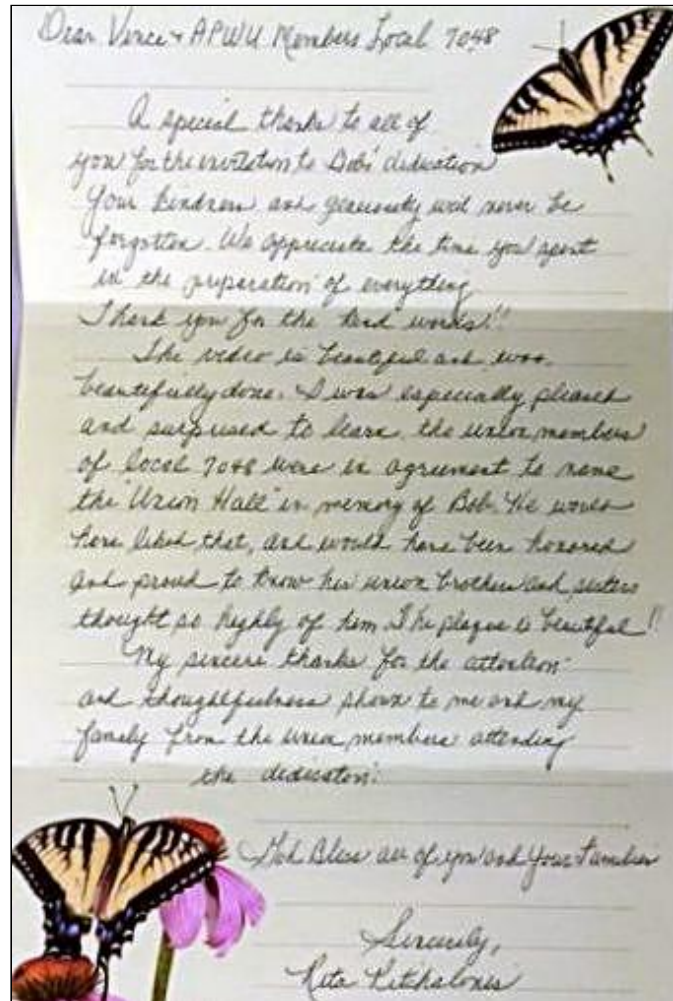 Dear Vince + APWU Members Local 7048
A special thanks to all of
you for the invitation to Bob's dedication
Your kindness and generosity will never be
forgotten. We appreciate the time you spent
in the preparation of everything
Thank you for the kind words!!
The video is beautiful and was
beautifully done. I was especially pleased
and surprised to learn the union members
of local 7048 were in agreement to name
the "Union Hall" in memory of Bob. He would
have liked that, and would have been honored
and proud to know his union brothers and sisters
thought so highly of him. The plaque is beautiful!!
My sincere thanks for the attention
and thoughtfulness shown to me and my
family from the union members attending
the dedication.
God Bless all of you and Your Families
Sincerely,
Rita